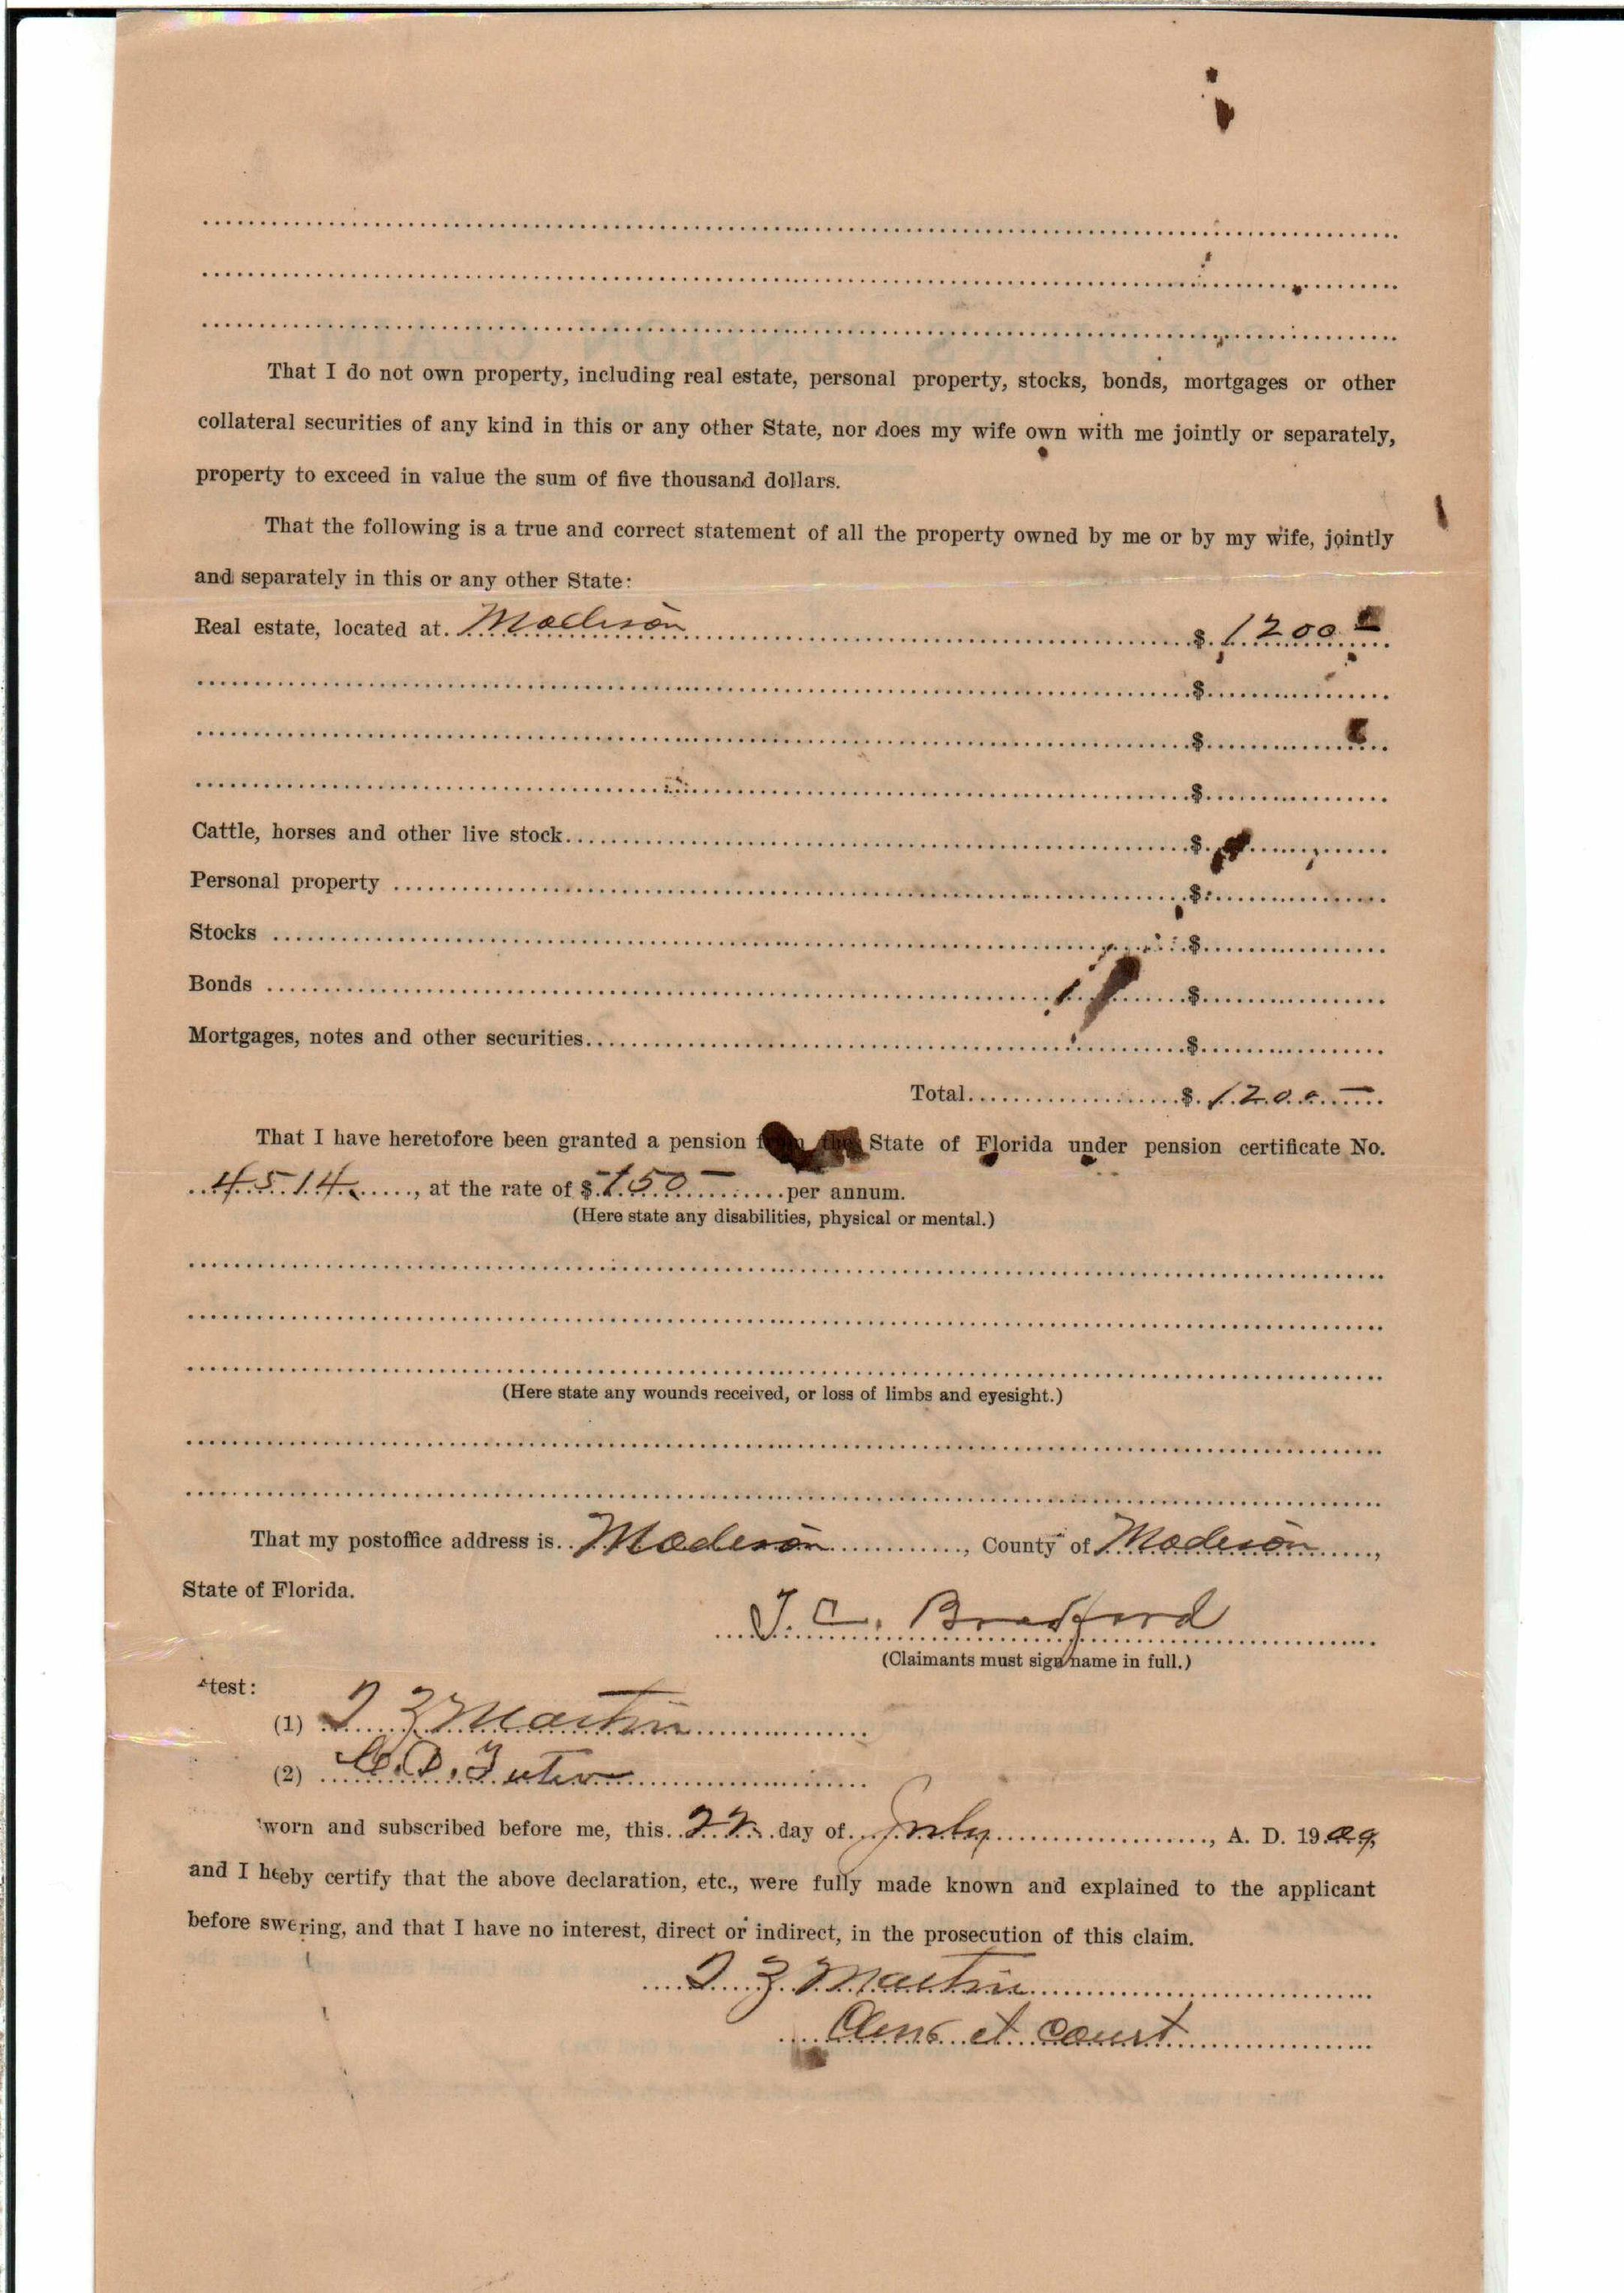 That I do not own property, including real estate, personal property, stocks, bonds, mortgages or other
collateral securities of any kind in this or any other State, nor does my wife own with me jointly or separately,
property to exceed in value the sum of five thousand dollars.
That the following is a true and correct statement of all the property owned by me or by my wife, jointly
and separately in this or any other State:
Real estate, located at Madison $ 1200
$
$
$
Cattle, horses and other live stock $
Personal property $
Stocks $
Bonds $
Mortgages, notes and other securities $
Total $ 1200
That I have heretofore been granted a pension from the State of Florida under pension certificate No.
4514, at the rate of $ 150 per annum.
(Here state any disabilities, physical or mental.)
(Here state any wounds received, or loss of limbs and eyesight.)
That my postoffice address is Madison, County of Madison,
State of Florida.
J. C. Bradford
(Claimants must sign name in full.)
test:
(1) Martin
(2)
worn and subscribed before me, this 22 day of July, A. D. 1909,
and I heeby certify that the above declaration, etc., were fully made known and explained to the applicant
before swering, and that I have no interest, direct or indirect, in the prosecution of this claim.
Martin
court